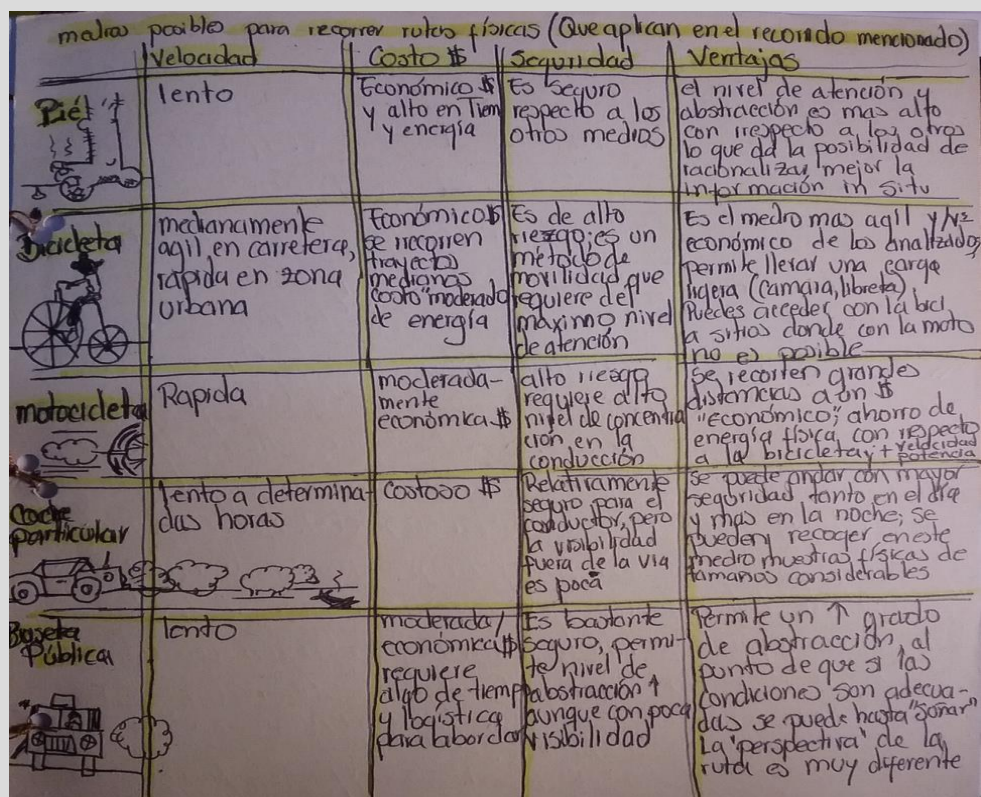 medios posibles para recorrer rutas físicas (Que aplican en el recorrido mencionado)
Velocidad
Costo $
Seguridad
Ventajas
Pié
lento
Económico $
y alto en Tiem
y energía
Es seguro
respecto a los
otros medios
el nivel de atención y
abstracción es mas alto
con rrespecto a los otros
lo que da la posibilidad de
racionalizar mejor la
información in situ
Bicicleta
medianamente
agil en carretera,
rápida en zona
urbana
Económico $
se recorren
trayectos
medianos
costo "moderado
de energía
Es de alto
riezgo; es un
método de
movilidad que
requiere del
máximo nivel
de atención
Es el medio mas agil y/v²
económico de los analizados,
permite llevar una carga
ligera (camara, libreta),
Puedes acceder con la bici
a sitios donde con la moto
no es posible
motocicleta
Rapida
moderada-
mente
económica $
alto riesgo
requiere alto
nivel de concentra
ción en la
conducción
se recorren grandes
distancias aún $
"económico"; ahorro de
energía física, con respecto
a la bicicleta y + velocidad
potencia
Coche
particular
lento a determina-
das horas
costoso $
Relativamente
seguro para el
conductor, pero
la visibilidad
fuera de la via
es poca
se puede andar con mayor
seguridad tanto en el día
y mas en la noche; se
pueden recoger en este
medio muestras físicas de
tamaños considerables
Buseta
Pública
lento
moderada/
económica $
requiere
algo de tiemp
y logística
para abordar
Es bastante
seguro, permi-
te nivel de
abstracción ↑
aunque con poca
visibilidad
Permite un ↑ grado
de abstracción, al
punto de que si las
condiciones son adecua-
das se puede hasta "soñar"
La "perspectiva" de la
ruta es muy diferente